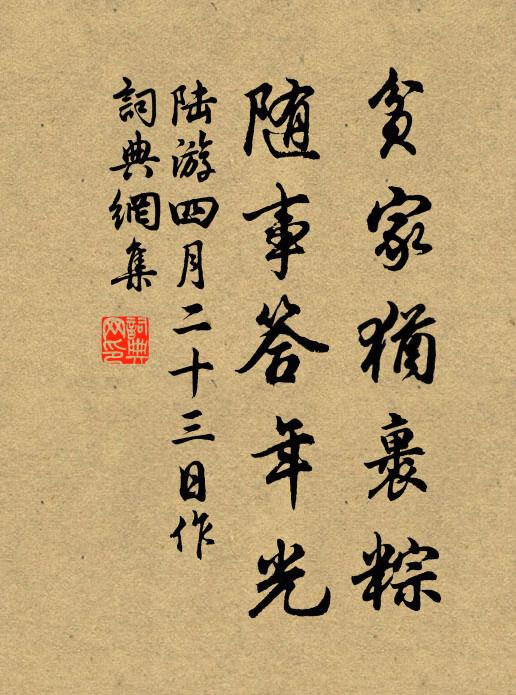 貧家猶裹粽
随事答年光
陸游四月二十三日作
詞典網集
詞典网印